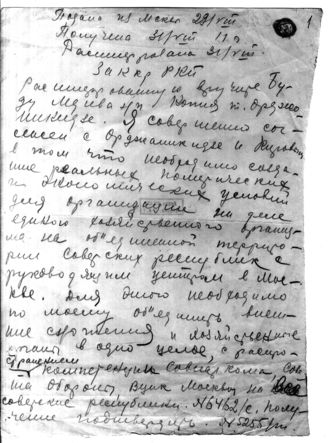 1
Подана из Москвы 29/VIII
Получена 31/VIII 11 ч
Расшифрована 31/VIII
ЗаккрРКП
Расшифрованную вручите Бу-
ду Мдивани Копия т. Орджо-
никидзе. Я совершенно сог-
ласен с Орджоникидзе и Кировым
в том что необходимо созда-
ние реальных политических
и экономических условий
для организации на деле
единого хозяйственного организ-
ма на объединенной террито-
рии советских республик с
руководящим центром в Мос-
кве. Для этого необходимо
по моему объединить внеш-
ние сношения и хозяйственные
органы в одно целое, с распро-
странением
компетенции Совнаркома, Сове-
та Обороны, Вцик Москвы на все
советские республики. №6462/с. Полу-
чение подтвердить. №5255/